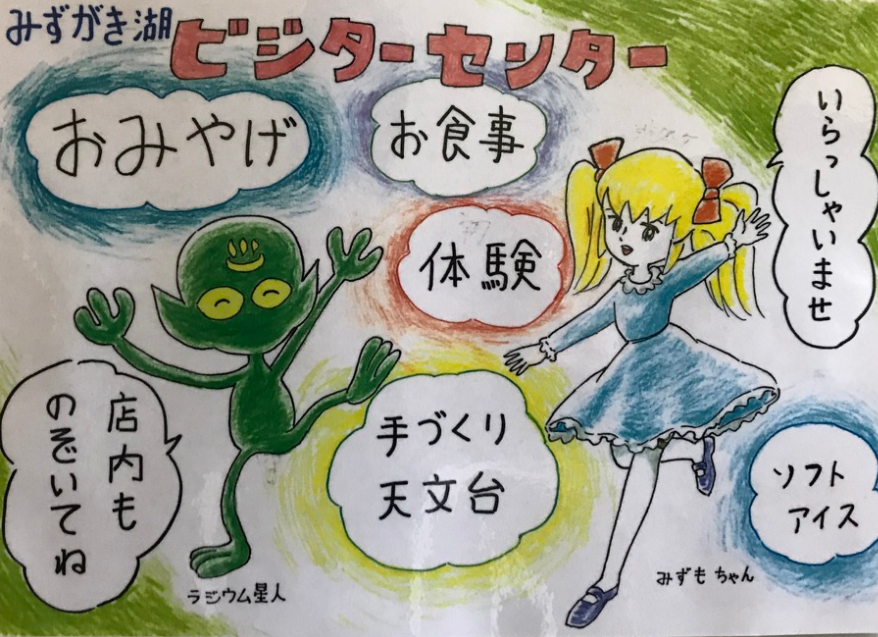 みずがき湖
ビジターセンター
おみやげ
お食事
いらっしゃいませ
体験
店内も
のぞいてね
手づくり
天文台
ソフト
アイス
ラジウム星人
みずもちゃん